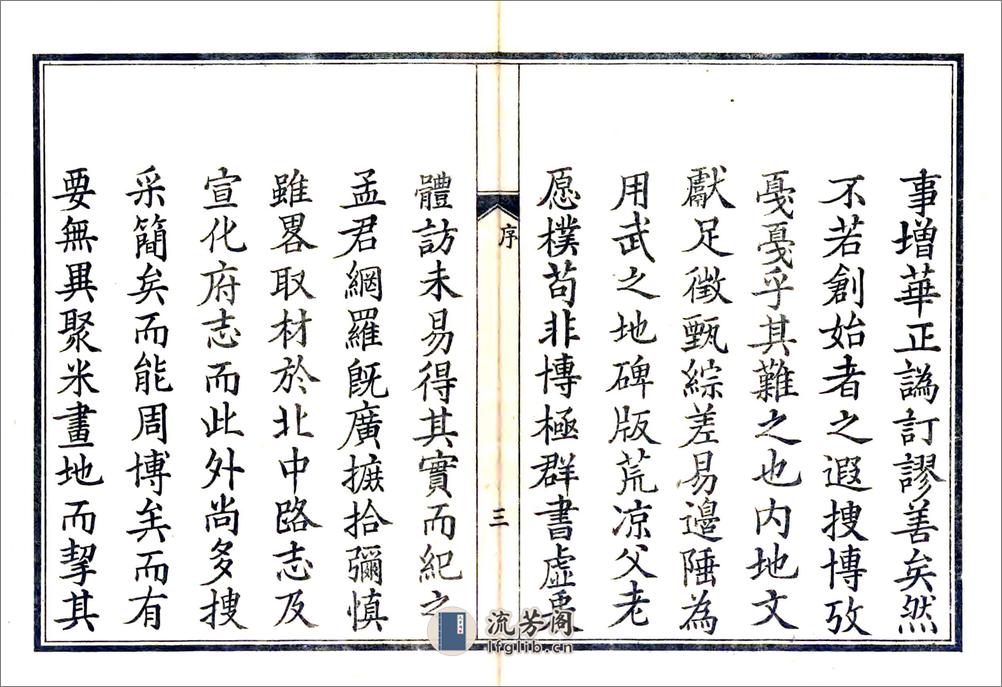 事增華正譌訂謬善矣然
不若創始者之遐搜博攷
戞戞乎其難之也内地文
獻足徵甄綜差易邊陲為
用武之地碑版荒凉父老
愿樸苟非博極群書虛
序
三
體訪未易得其實而紀之
孟君網羅旣廣摭拾彌慎
雖畧取材於北中路志及
宣化府志而此外尚多搜
采簡矣而能周博矣而有
要無異聚米畫地而挈其
流芳阁
lfglib.cn